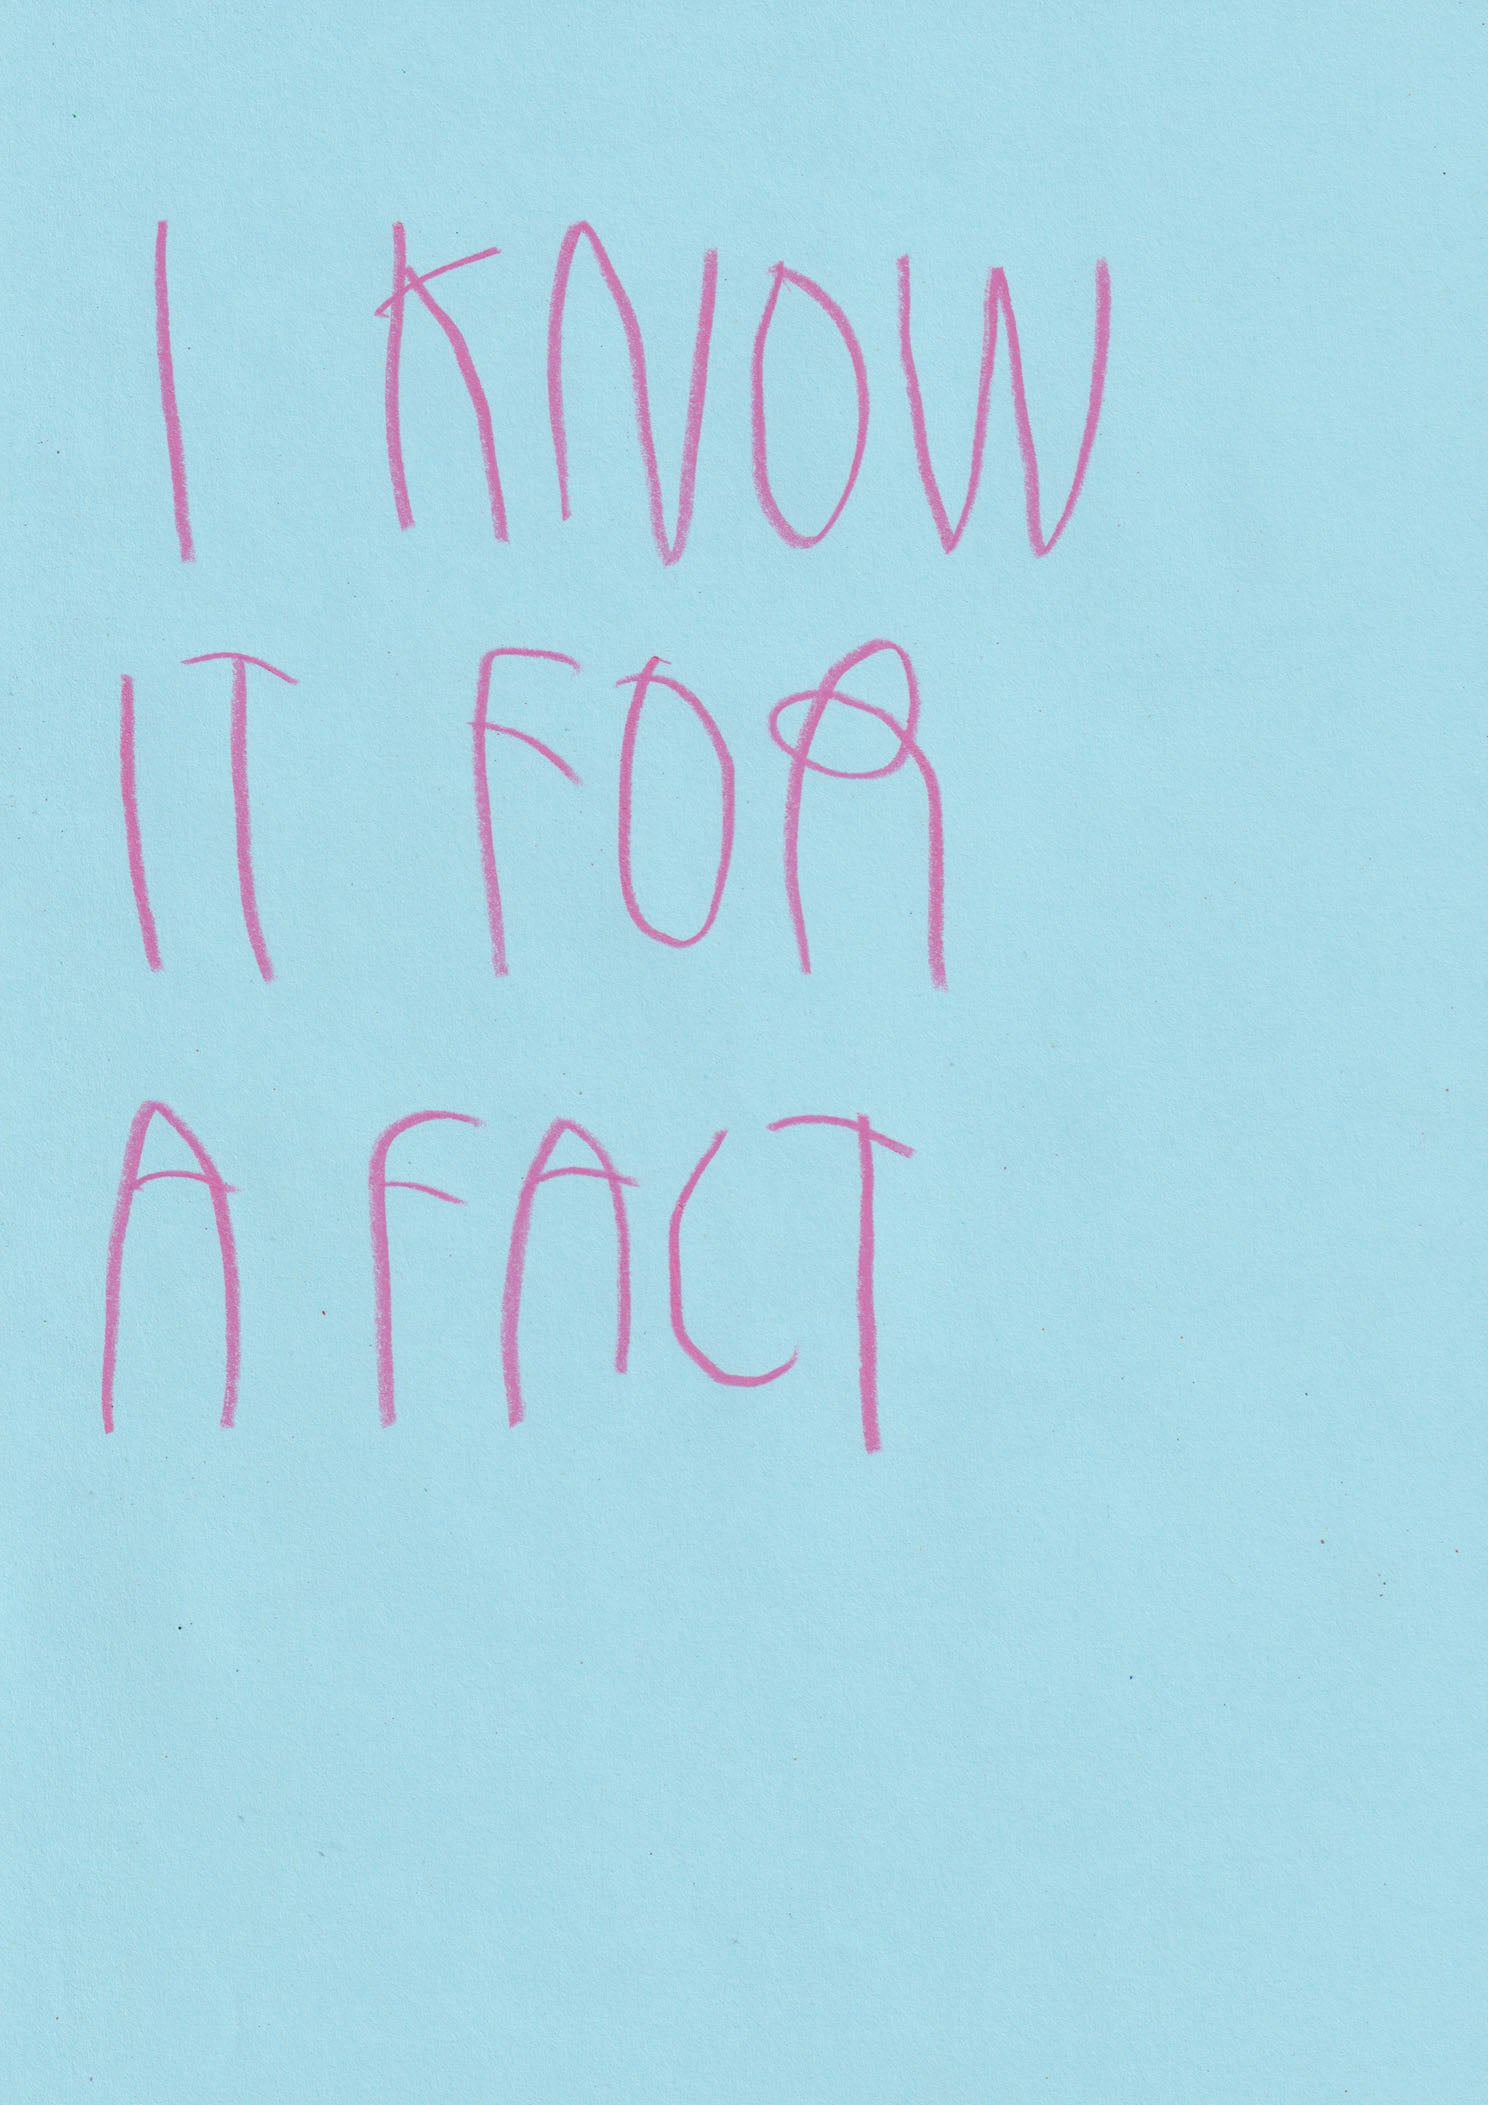 I KNOW
IT FOR
A FACT